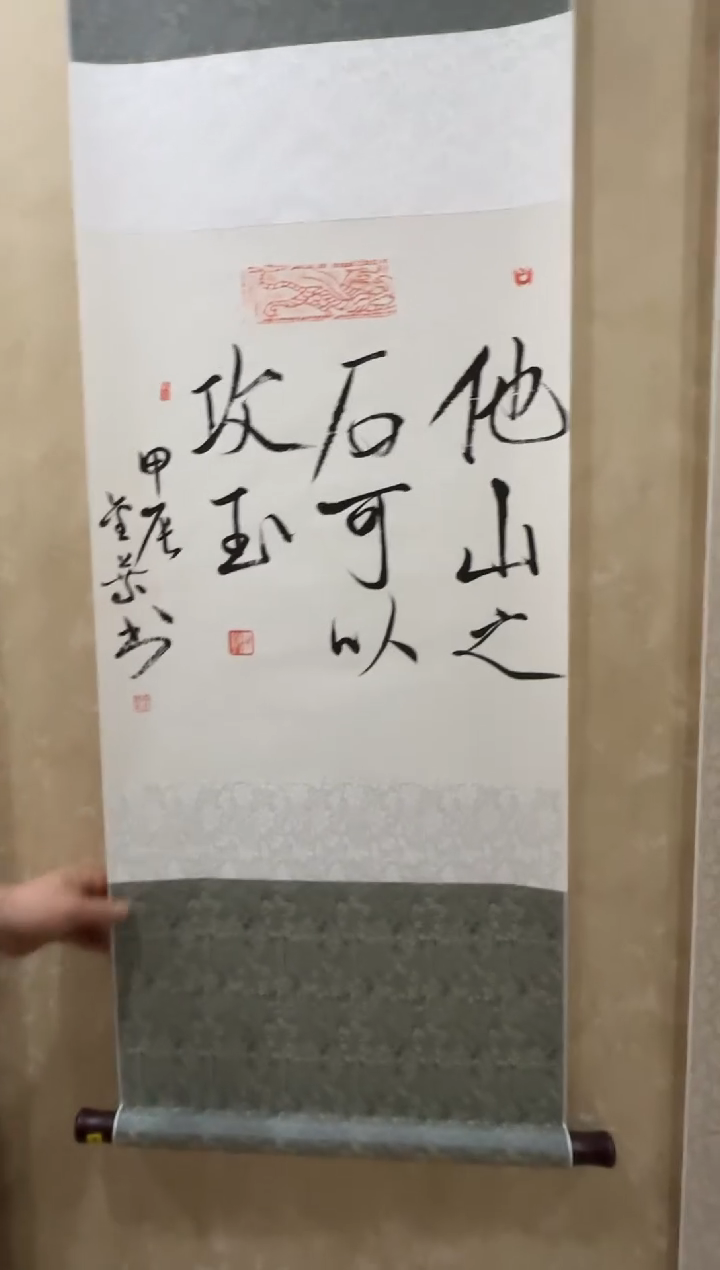 他山之
石可以
攻玉
甲辰
书